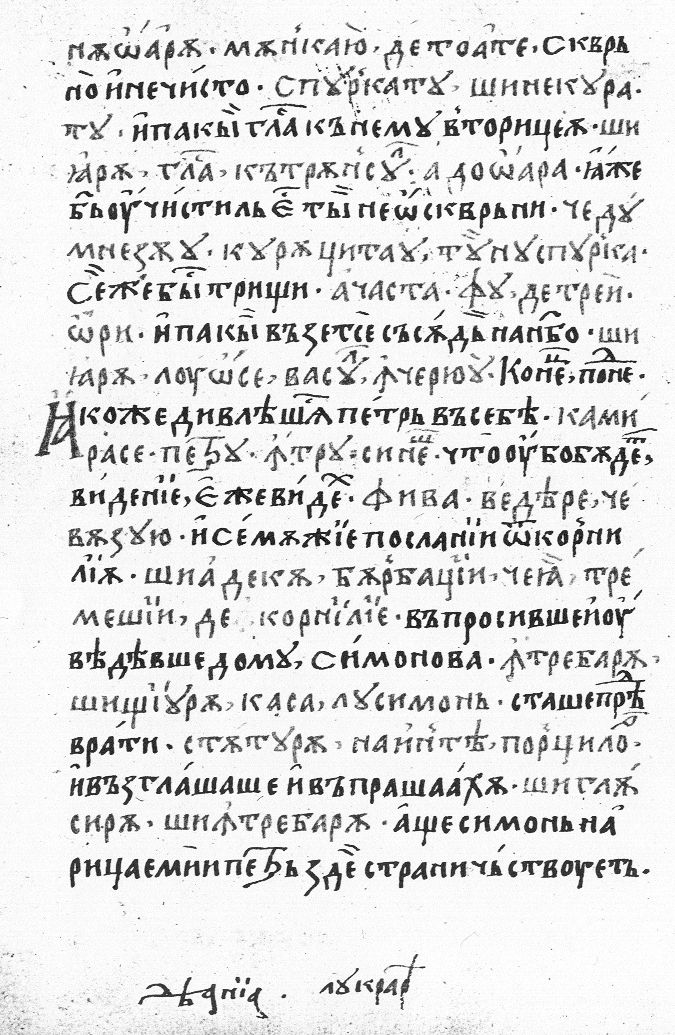 нѫѡ҆арѫ · мѫни́каю҆, детоа҆те, скврь
но̀ и҆нечи́сто · Спꙋркатꙋ, шинекꙋра·
тꙋ, и҆пакы̏ гл҃а къ немꙋ в̾торицеѫ · ши
ꙗ҆рѫ, гл҃а, кътрѫнсꙋ̀л · а дош҆ара · ꙗ҆́же
бь оу҆чи́стиль є҆ ты̏ неѡ҆́сквръни · че дꙋ́
мнезѫꙋ · кꙋрѫцитаꙋ, тꙋ̏ нꙋспꙋрка ·
Се́же бы̑ трищи · а҆часта · фꙋ, детреи҆ ·
ѡ҆ри · и҆пакы̏ възетсе съсѫдь нанб҃о · ши
ꙗ҆рѫ, лоуѡ҆́се, васꙋ̀л, ꙟ҆черюꙋ̀ · Коне́ц, поне ·
Ꙗ҆коже дивлѣшѐсѧ пе́трь въсебѣ · ками҆
расе · петрꙋ · ꙟ҆трꙋ · сине́ш · что оу҆бо бѫдет,
ви́дение, є҆́же ви́дех · фива · ведѣре, че
вѫзꙋю · и҆ се́ мѫжїе посланїи ѿ корни
лїѧ · шиа҆декѫ, бѫрбацїи, чеꙗ҆, тре́
мешїи, де корнї́лїе · въпросившеи҆ оу҆́
вѣдѣвше домꙋ, симонова · ꙟ҆требарѫ,
шищїꙋрѫ, каса, лꙋсимонь · сташе прѣд
врати · стѫтꙋрѫ, наи҆нтѣ, порцило҆р ·
и҆възглашаше и҆въпрашаа҆хѫ · ши глѫ
сирѫ, шиꙟ҆требарѫ · а҆ще симонь на
рицаемїи петрь зде̏ страничьствоует̾ь .
Дѣанїа . лꙋкрар